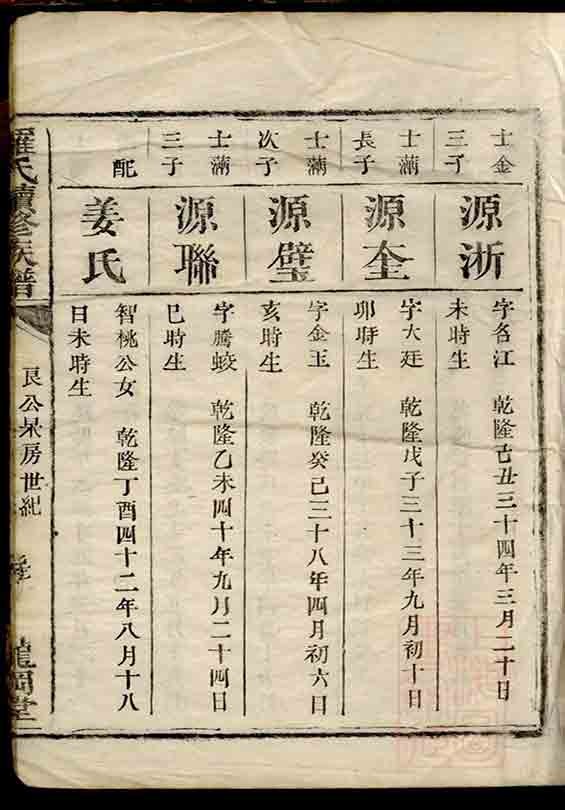 士金
三子
源浙
字名江　乾隆己丑三十四年三月二十日
未時生
士滿
長子
源奎
字大廷　乾隆戊子三十三年九月初十日
卯時生
士滿
次子
源璧
字金玉　乾隆癸巳三十八年四月初六日
亥時生
士滿
三子
源聯
字騰蛟　乾隆乙未四十年九月二十四日
巳時生
配
姜氏
智桃公女　乾隆丁酉四十二年八月十八
日未時生
羅氏續修族譜
良公杲房世紀
龍岡堂